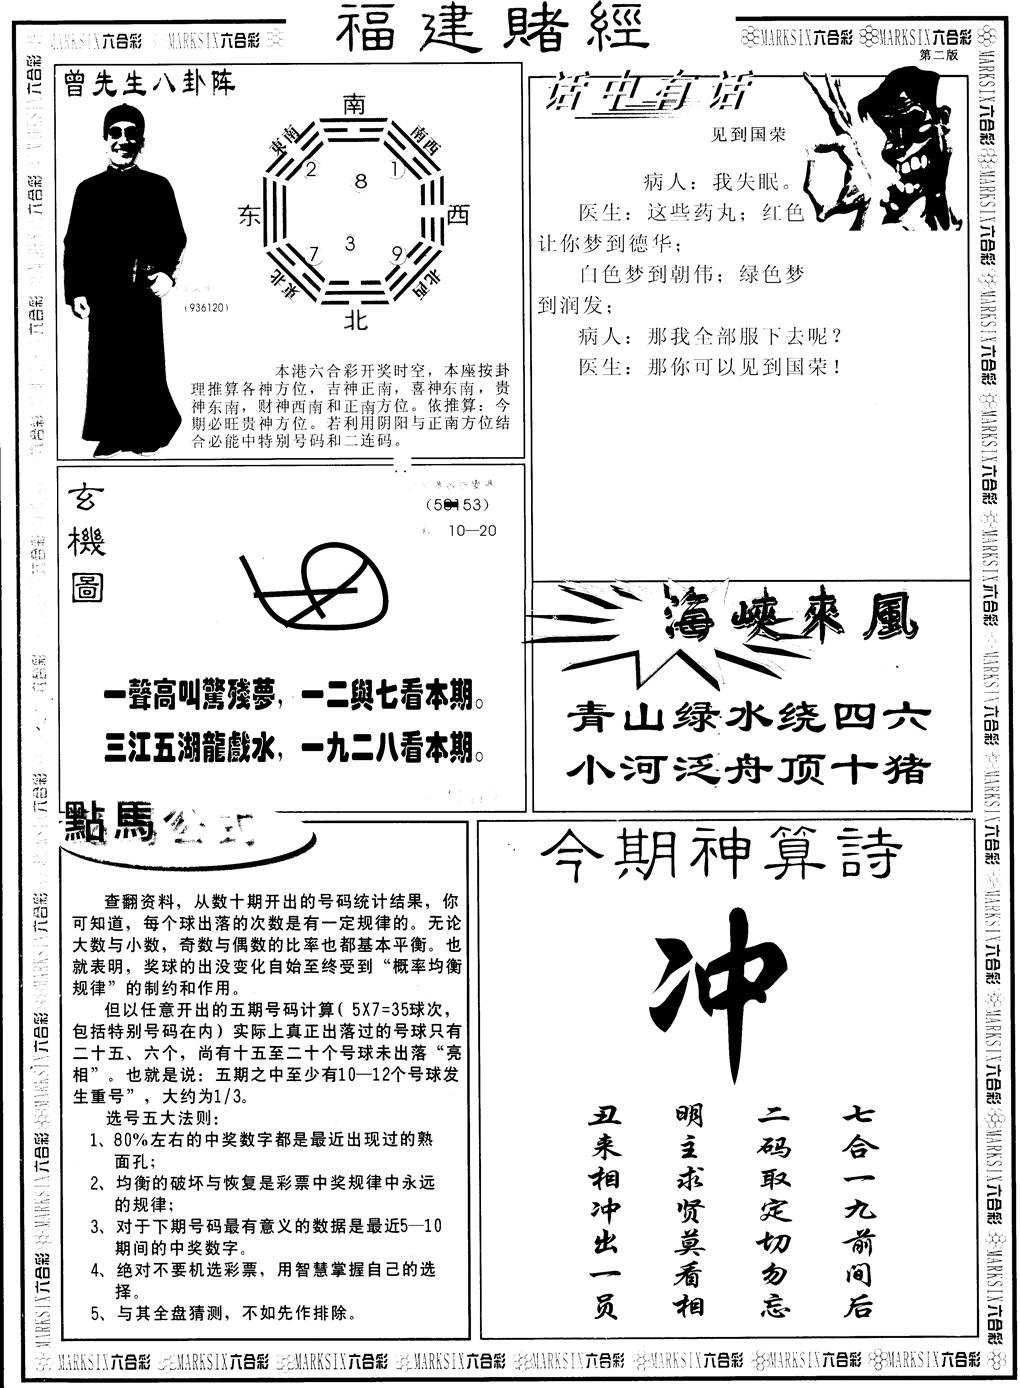 福建賭經
MARKSIX六合彩 MARKSIX六合彩
MARKSIX六合彩 MARKSIX六合彩
第二版
曾先生八卦阵
南
東南
南西
2
8
1
东
西
7
3
9
東北
北西
北
(936120)
本港六合彩开奖时空，本座按卦
理推算各神方位，吉神正南，喜神东南，贵
神东南，财神西南和正南方位。依推算：今
期必旺贵神方位。若利用阴阳与正南方位结
合必能中特别号码和二连码。
话中有话
见到国荣
病人：我失眠。
医生：这些药丸；红色
让你梦到德华；
白色梦到朝伟；绿色梦
到润发；
病人：那我全部服下去呢？
医生：那你可以见到国荣！
玄機圖
10—20
一聲高叫驚殘夢，一二與七看本期。
三江五湖龍戲水，一九二八看本期。
海峽來風
青山绿水绕四六
小河泛舟顶十猪
點馬公式
查翻资料，从数十期开出的号码统计结果，你
可知道，每个球出落的次数是有一定规律的。无论
大数与小数，奇数与偶数的比率也都基本平衡。也
就表明，奖球的出没变化自始至终受到“概率均衡
规律”的制约和作用。
但以任意开出的五期号码计算( 5X7=35球次，
包括特别号码在内) 实际上真正出落过的号球只有
二十五、六个，尚有十五至二十个号球未出落“亮
相”。也就是说：五期之中至少有10—12个号球发
生重号”，大约为1/3。
选号五大法则：
1、80%左右的中奖数字都是最近出现过的熟
面孔；
2、均衡的破坏与恢复是彩票中奖规律中永远
的规律；
3、对于下期号码最有意义的数据是最近5—10
期间的中奖数字。
4、绝对不要机选彩票，用智慧掌握自己的选
择。
5、与其全盘猜测，不如先作排除。
今期神算詩
冲
七合一九前间后
二码取定切勿忘
明主求贤莫看相
丑来相冲出一员
MARKSIX六合彩 MARKSIX六合彩 MARKSIX六合彩 MARKSIX六合彩 MARKSIX六合彩 MARKSIX六合彩 MARKSIX六合彩 MARKSIX六合彩